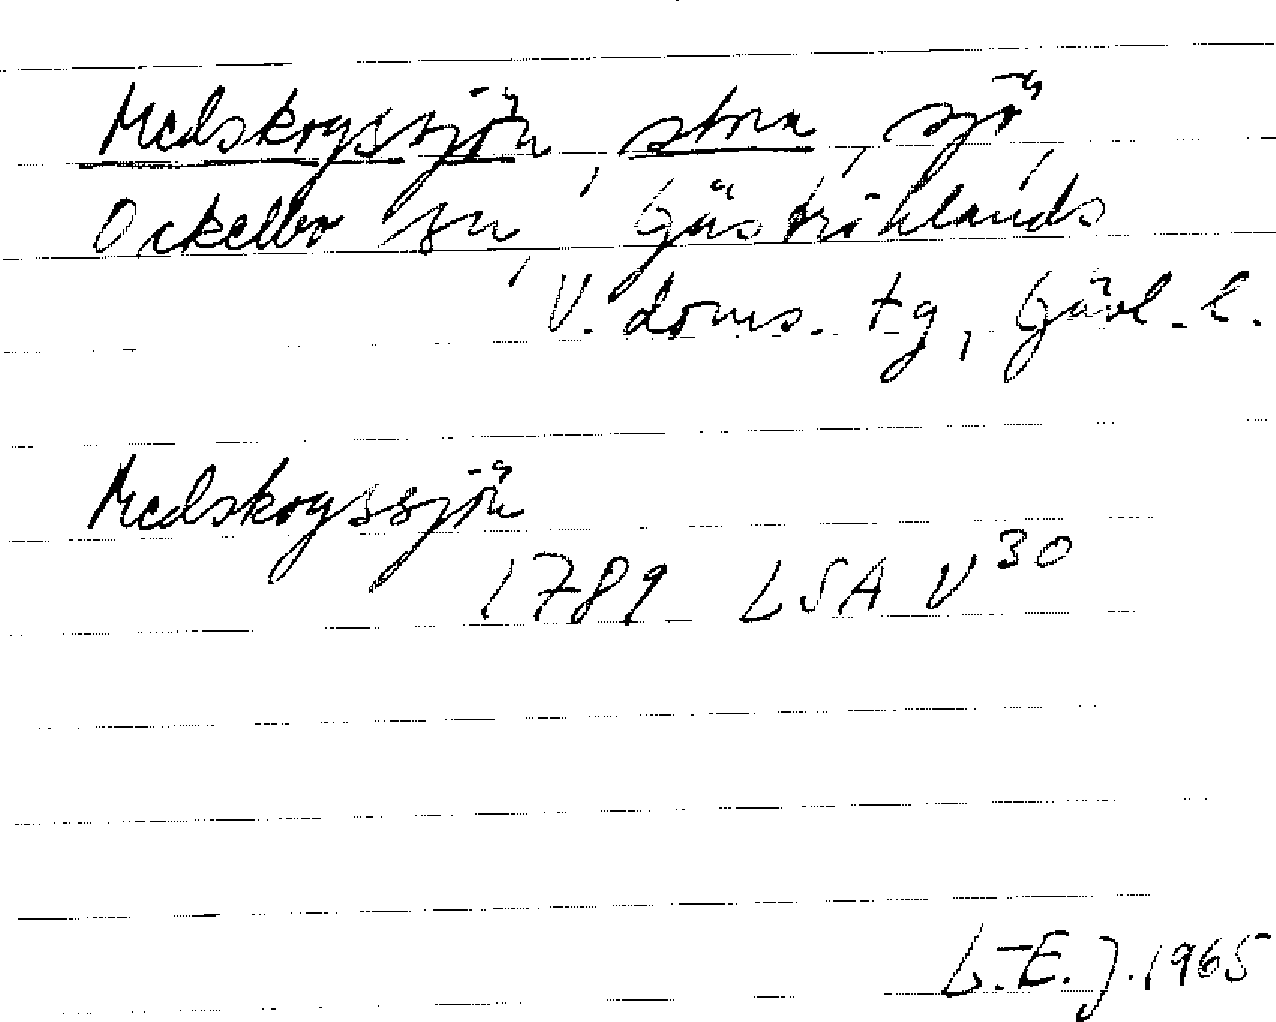 Medskogssjön, stora, sjö,
Ockelbo sn, Gästriklands
V. doms. tg, Gävl. l.
Medskogssjön
1789 LSA V30
L.-E. J. 1965